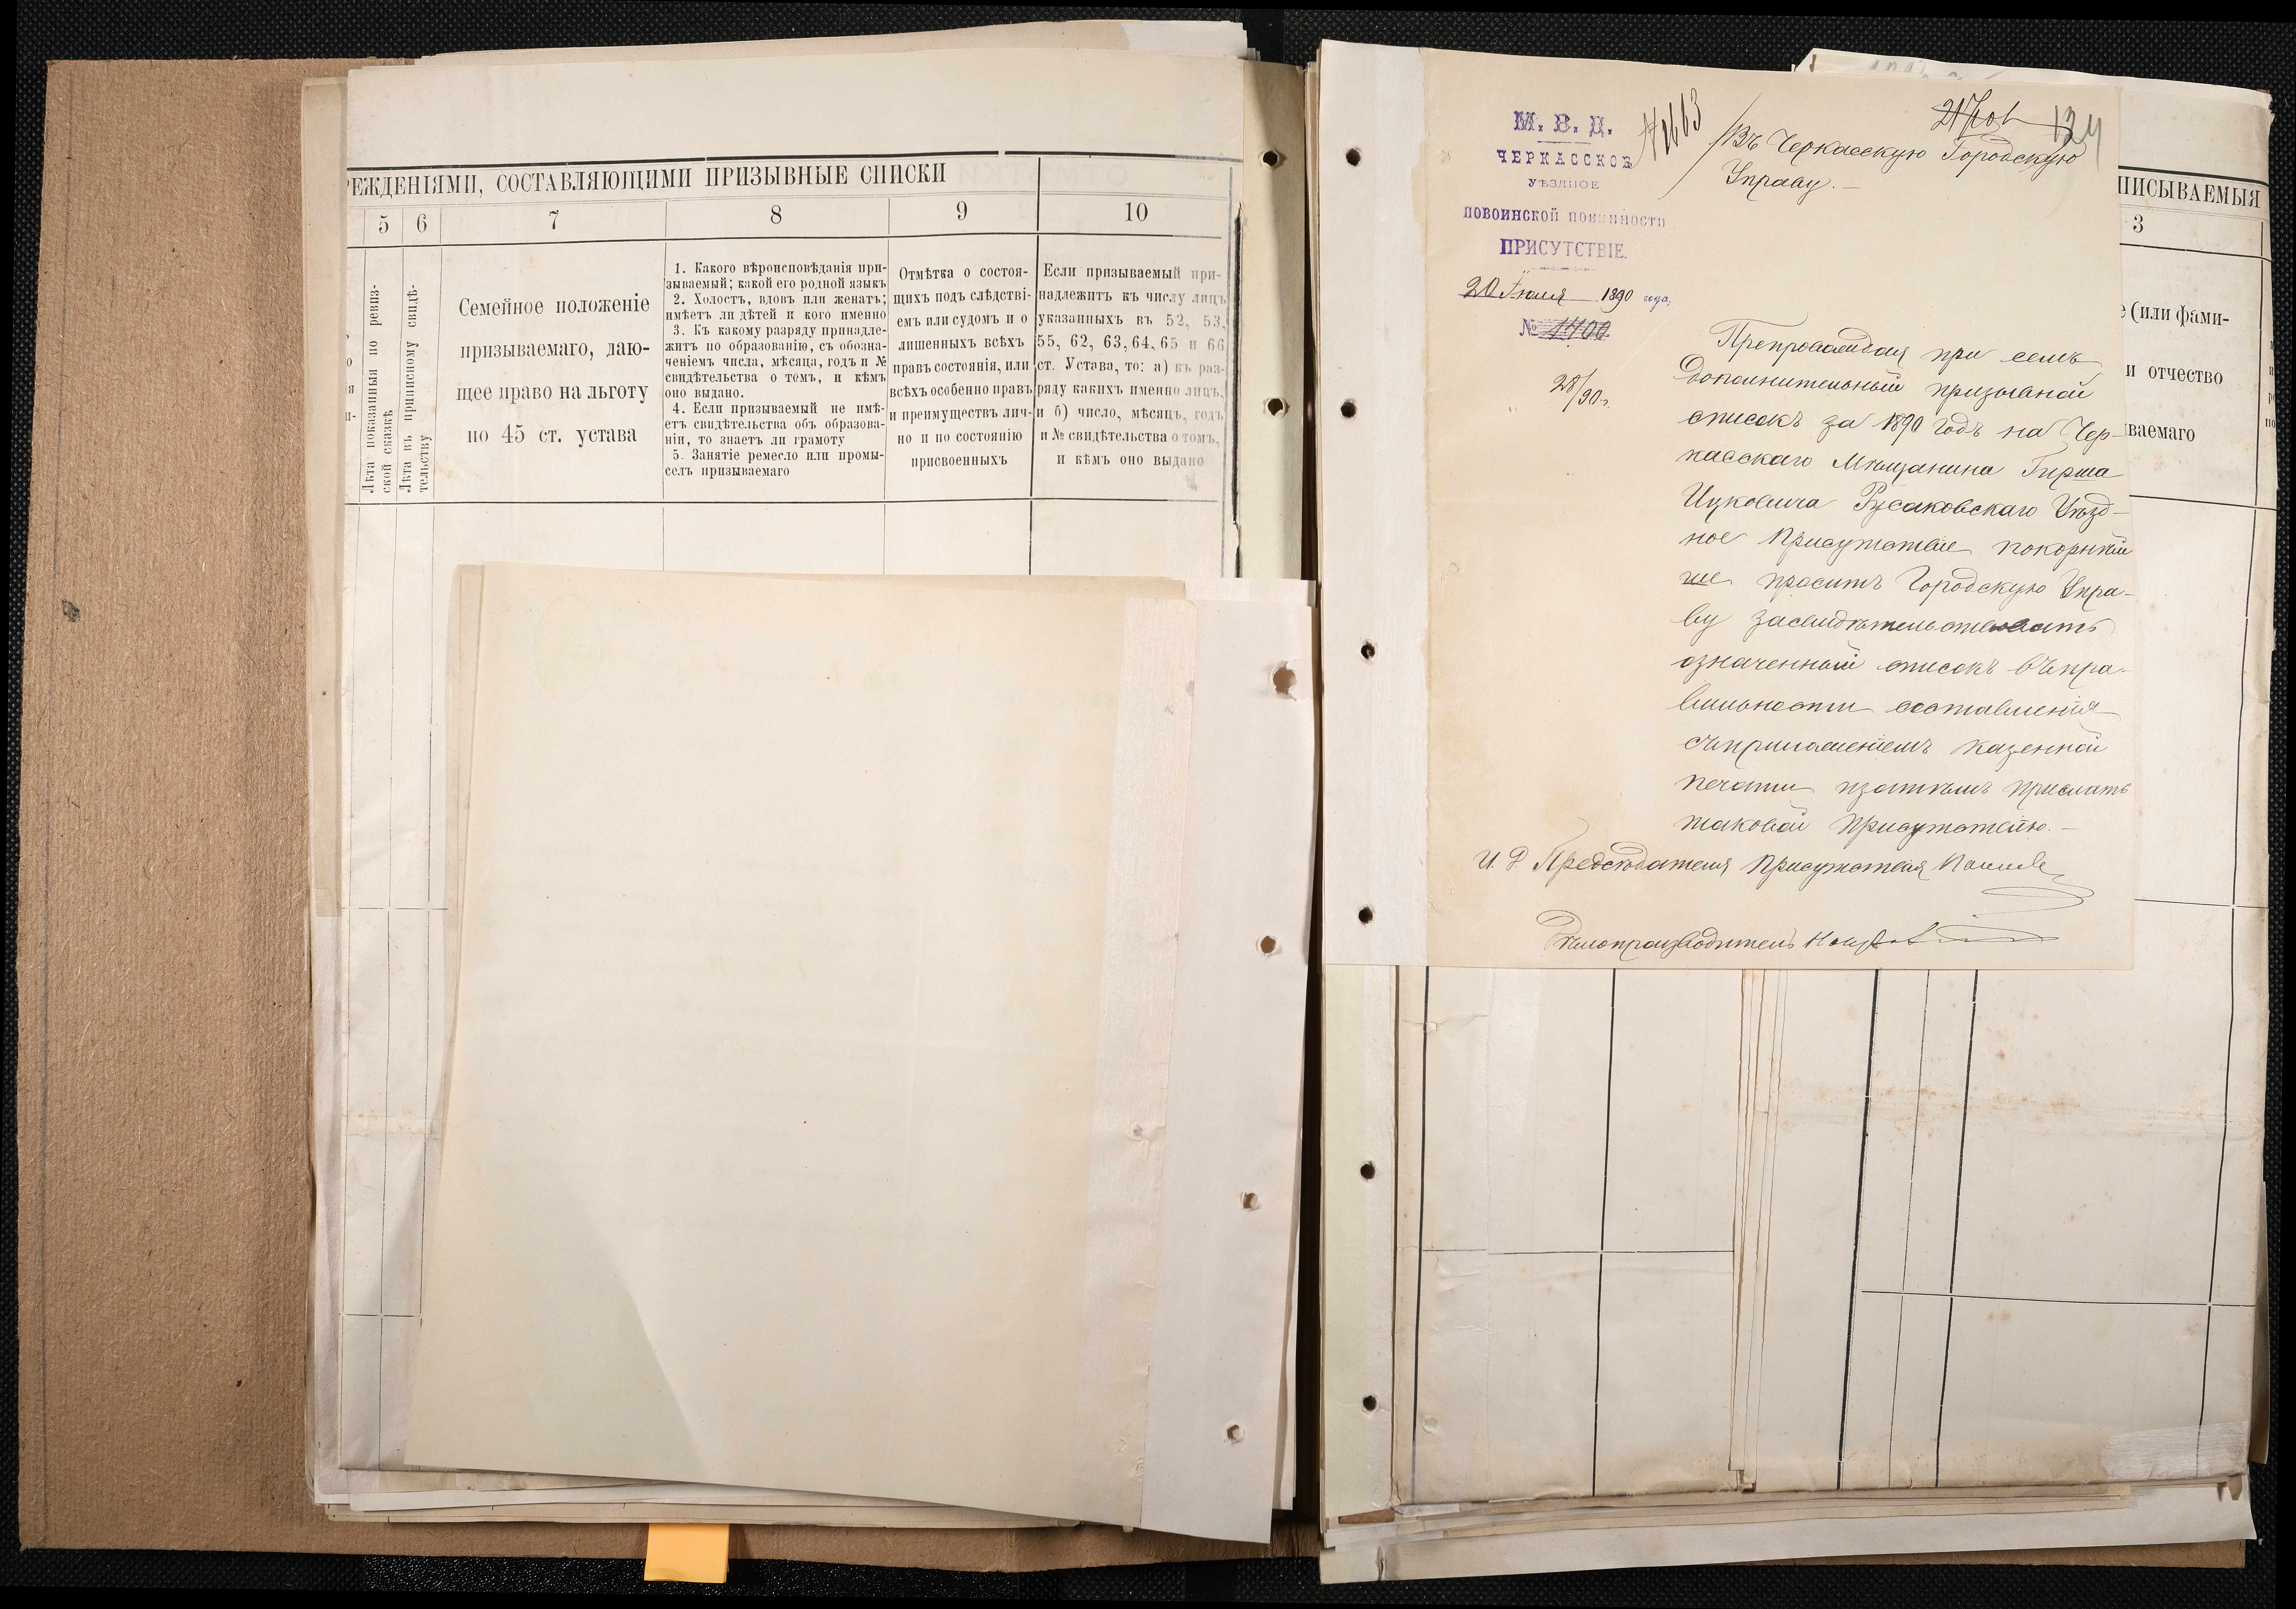 РЕЖДЕНІЯМИ, СОСТАВЛЯЮЩИМИ ПРИЗЫВНЫЕ СПИСКИ
5 6 7 8 9 10
Лѣта показанныя по ревиз-
ской сказкѣ
Лѣта въ приписному свидѣ-
тельству
Семейное положеніе
призываемаго, даю-
щее право на льготу
по 45 ст. устава
1. Какого вѣроисповѣданія при-
зываемый; какой его родной языкъ
2. Холостъ, вдовъ или женатъ;
имѣетъ ли дѣтей и кого именно
3. Къ какому разряду принадле-
житъ по образованію, съ обозна-
ченіемъ числа, мѣсяца, годъ и №
свидѣтельства о томъ, и кѣмъ
оно выдано.
4. Если призываемый не имѣ-
етъ свидѣтельства объ образова-
ніи, то знаетъ ли грамоту
5. Занятіе ремесло или промы-
селъ призываемаго
Отмѣтка о состоя-
щихъ подъ слѣдстві-
емъ или судомъ и о
лишенныхъ всѣхъ
правъ состоянія, или
всѣхъ особенно правъ
и преимуществъ лич-
но и по состоянію
присвоенныхъ
Если призываемый при-
надлежитъ къ числу лицъ
указанныхъ въ 52, 53,
55, 62, 63, 64, 65 и 66
ст. Устава, то: а) къ раз-
ряду какихъ именно лицъ,
и б) число, мѣсяцъ, годъ
и № свидѣтельства о томъ,
и кѣмъ оно выдано
М. В. Д.
ЧЕРКАССКОЕ
УѢЗДНОЕ
ПОВОИНСКОЙ ПОВИННОСТИ
ПРИСУТСТВІЕ.
20 Іюля 1890 года,
№ 1700
28/90 г.
№1663
134
Въ Черкасскую Городскую
Управу.—
Препровождая при семъ
дополнительный призывной
списокъ за 1890 годъ на Чер-
касскаго Мѣщанина Гирша
Ицковича Русаковскаго Уѣзд-
ное Присутствіе покорнѣй
ше проситъ Городскую Упра-
ву засвидѣтельствовать
означенный списокъ въ пра-
вильности составленія
съ приложеніемъ казенной
печати и затѣмъ прислать
таковой Присутствію.—
И. Д. Предсѣдателя Присутствія
Дѣлопроизводитель
ПИСЫВАЕМЫЯ
3
е (или фами-
и отчество
ываемаго